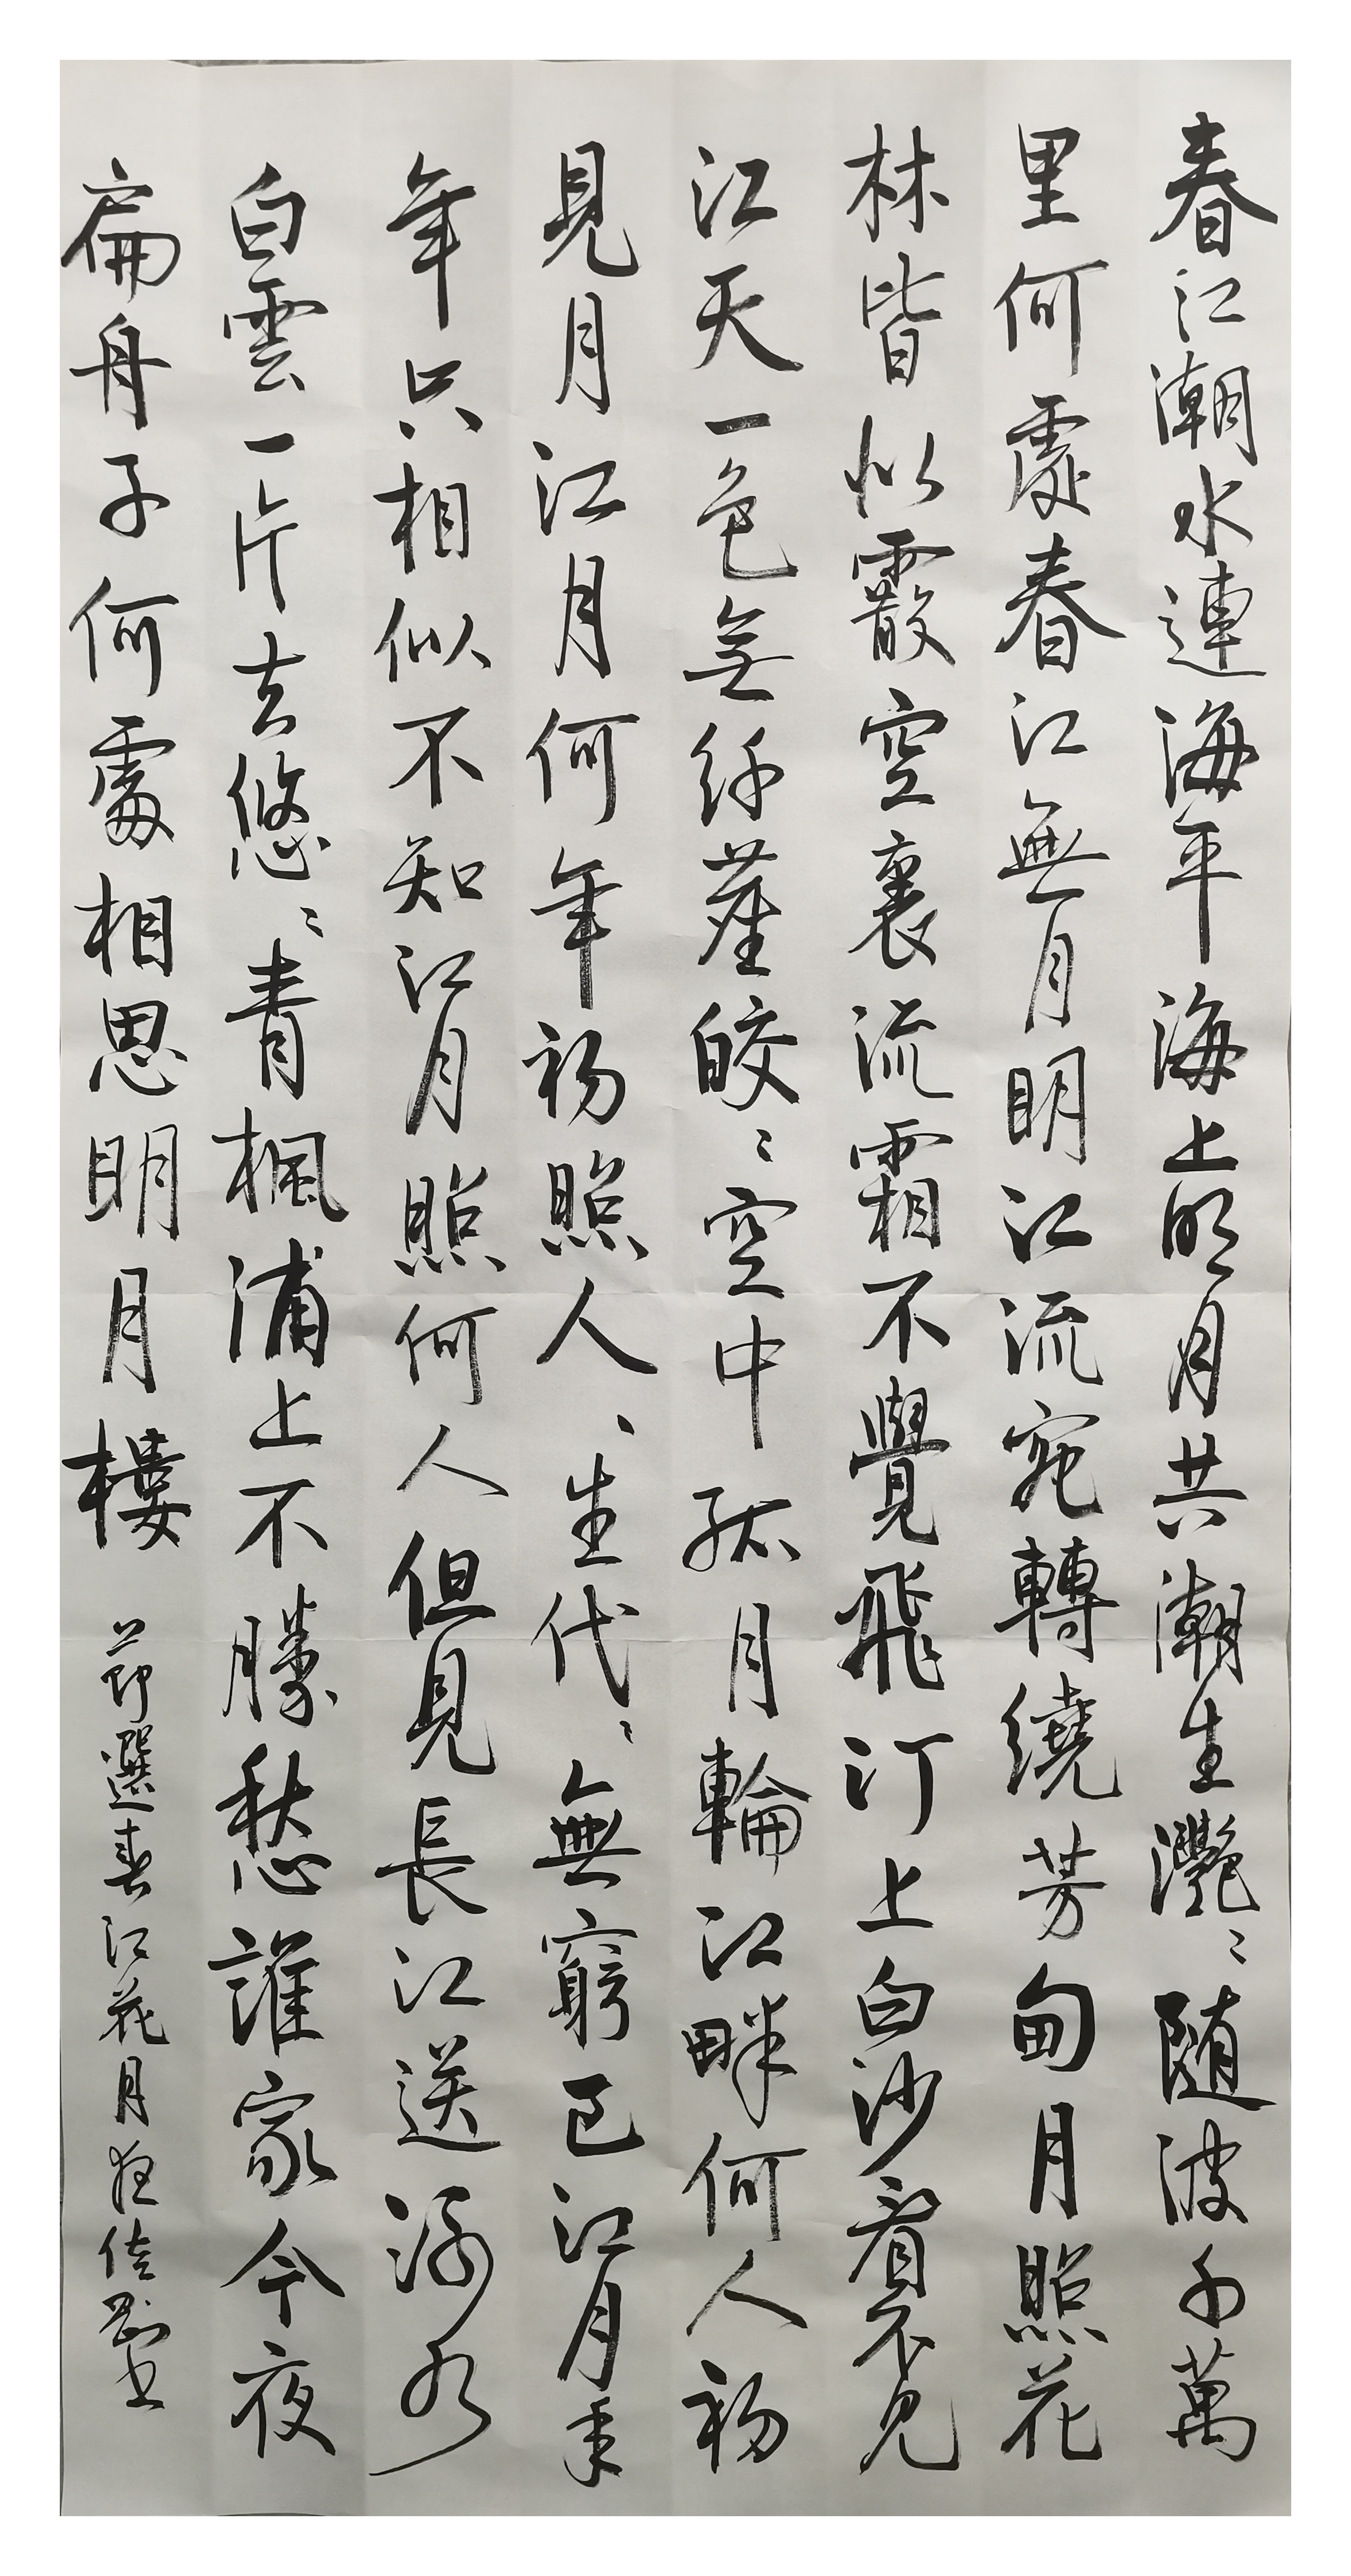 春江潮水連海平海上明月共潮生灧〻随波千萬
里何處春江無月明江流宛轉繞芳甸月照花
林皆似霰空裏流霜不覺飛汀上白沙看不見
江天一色無纤塵皎〻空中孤月輪江畔何人初
見月江月何年初照人、生代〻無窮已江月年
年只相似不知江月照何人但見長江送流水
白雲一片去悠〻青楓浦上不勝愁誰家今夜
扁舟子何處相思明月樓
節選春江花月夜书